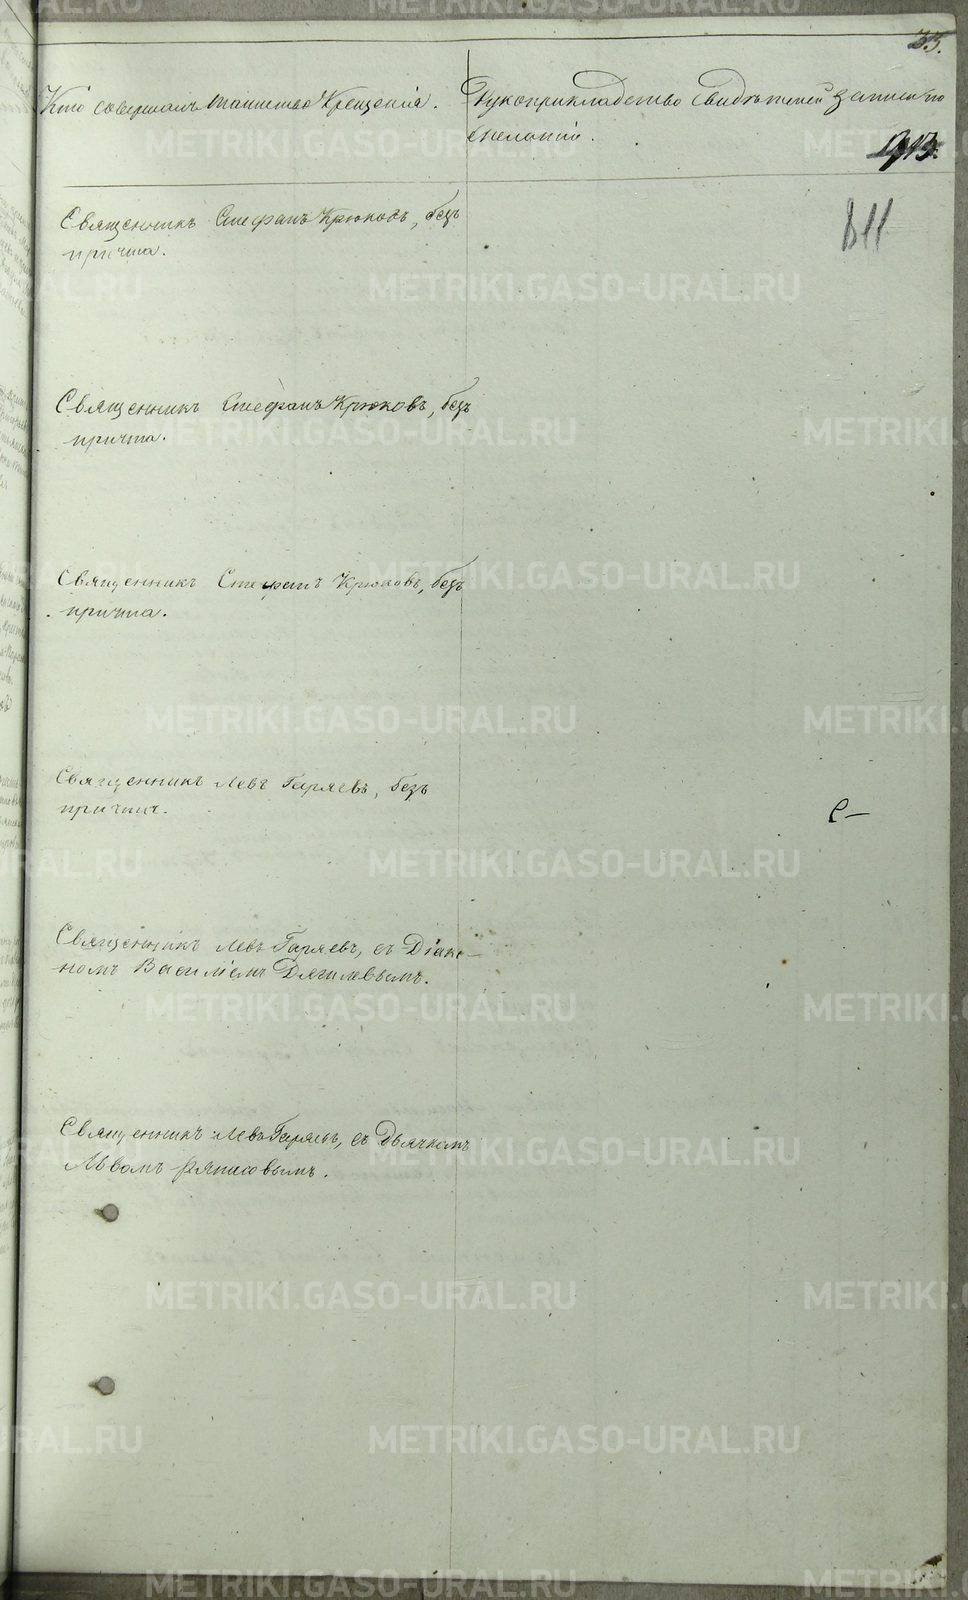 33.
Кто совершалъ таинство Крещенія.
Рукоприкладство свидѣтелей записи по
желанію.
913.
811
Священникъ Стефанъ Крюковъ, безъ
причта.
Священникъ Стефанъ Крюковъ, безъ
причта.
Священникъ Стефанъ Крюковъ, безъ
причта.
Священникъ Левъ Гаряевъ, безъ
причта.
Священникъ Левъ Гаряевъ, съ Діако-
номъ Василіемъ Дягилевымъ.
Священникъ Левъ Гаряевъ, съ Дьячкомъ
Львомъ
METRIKI.GASO-URAL.RU